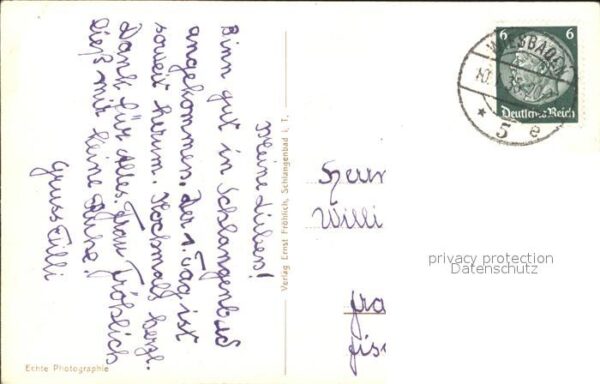 Meine Lieben!
Binn gut in Schlangenbad
angekommen. Der 1. Tag ist
soweit herum. Nochmalls herzl.
Dank für Alles. Frau Fröhlich
ließ mir keine Ruhe!
Gruss Lilli
Verlag Ernst Fröhlich, Schlangenbad i. T.
Echte Photographie
6 6
Deutsches Reich
WIESBADEN
* 5 e
Herr
Willi
privacy protection
Datenschutz
fra